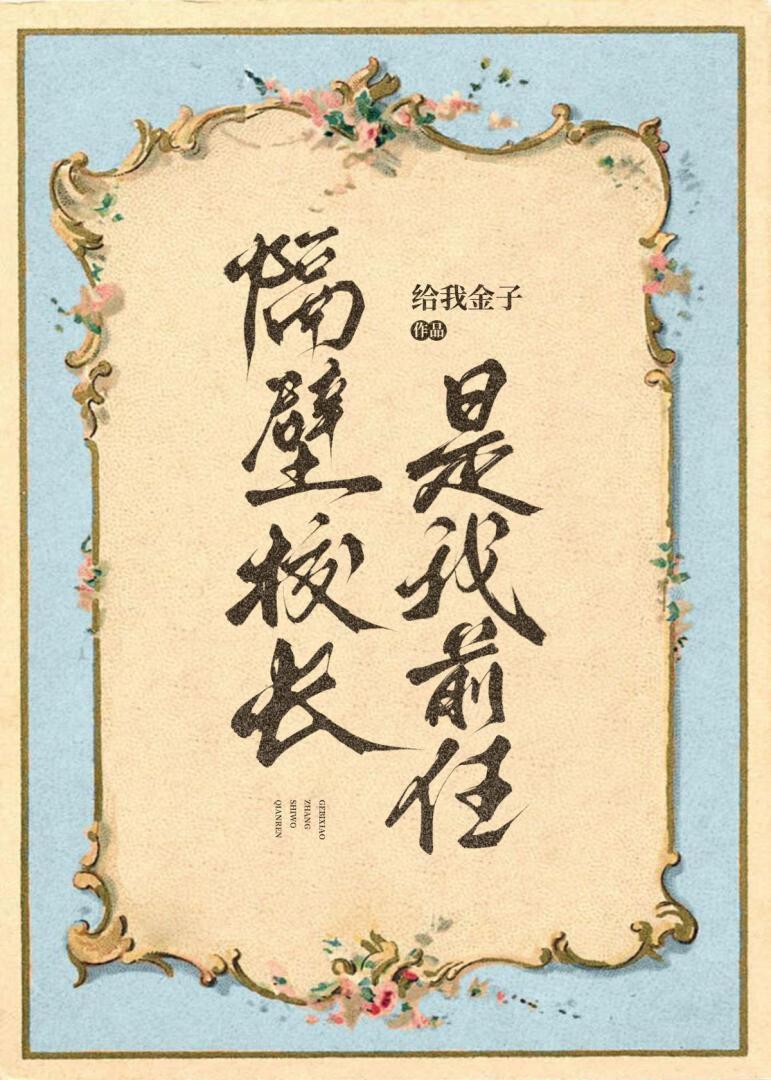 隔壁校长
是我前任
给我金子
作品
GEBIXIAO
ZHANG
SHIWO
QIANREN